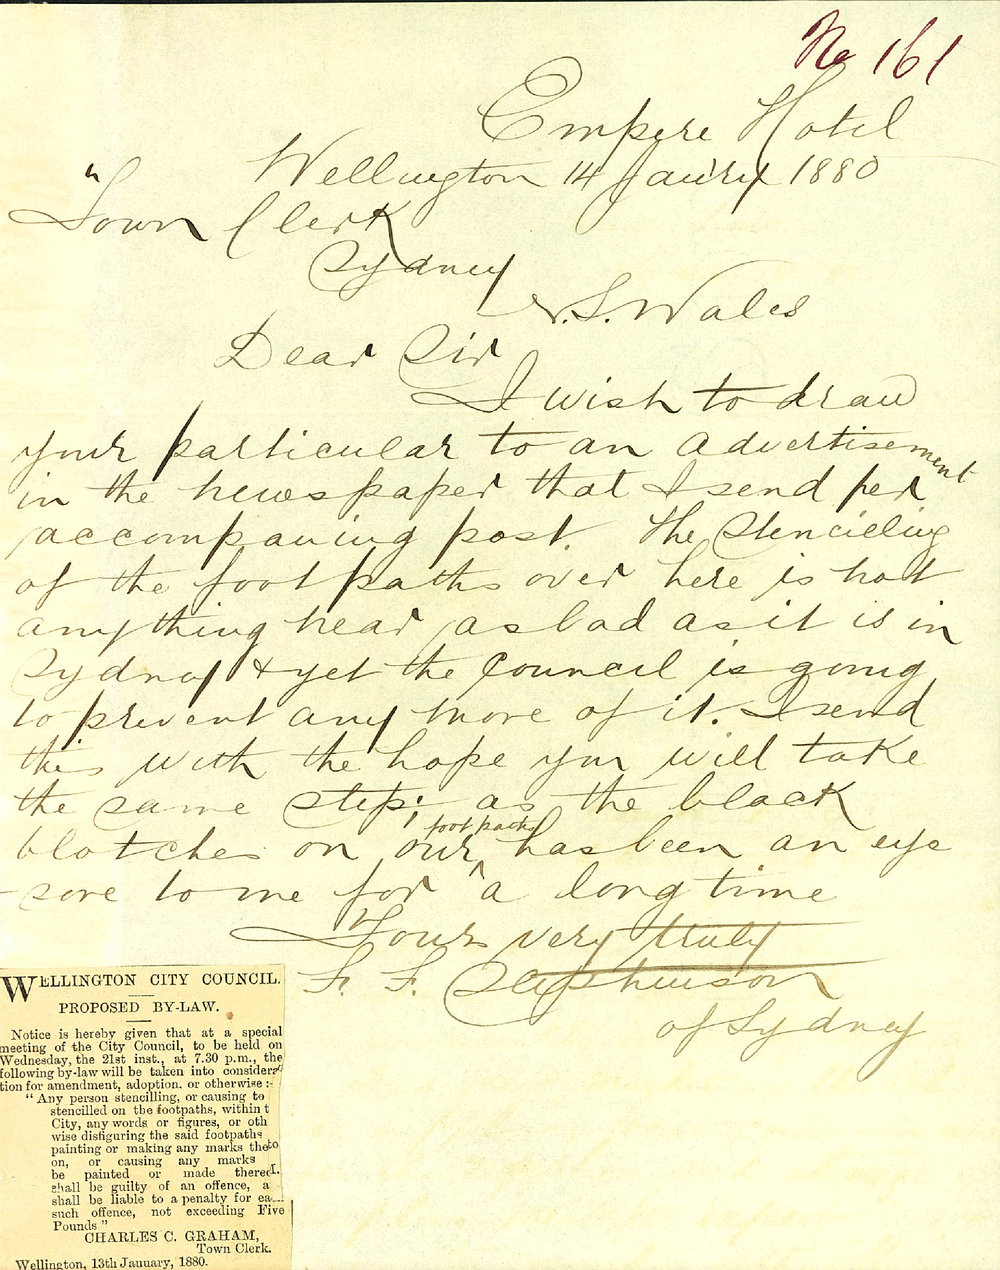 No 161
Empire Hotel
Wellington 14 Jan'ry 1880
"Town Clerk
Sydney
N.S. Wales
Dear Sir
I wish to draw
your particular to an advertisement
in the newspaper that I send per
accompaning post. The stencieling
of the foot paths over here is not
anything near as bad as it is in
Sydney & yet the Council is going
to prevent any more of it. I send
this with the hope you will take
the same step; as the black
blotches on our foot paths has been an eye
sore to me for a long time
Yours very truly
F. F. Stephenson
of Sydney
WELLINGTON CITY COUNCIL.
PROPOSED BY-LAW.
Notice is hereby given that at a special
meeting of the City Council, to be held on
Wednesday, the 21st inst., at 7.30 p.m., the
following by-law will be taken into considera
tion for amendment, adoption, or otherwise:-
"Any person stencilling, or causing to
stencilled on the footpaths, within t
City, any words or figures, or oth
wise disfiguring the said footpaths
painting or making any marks the to
on, or causing any marks
be painted or made thereo
shall be guilty of an offence, a
shall be liable to a penalty for ea
such offence, not exceeding Five
Pounds."
CHARLES C. GRAHAM,
Town Clerk.
Wellington, 13th January, 1880.